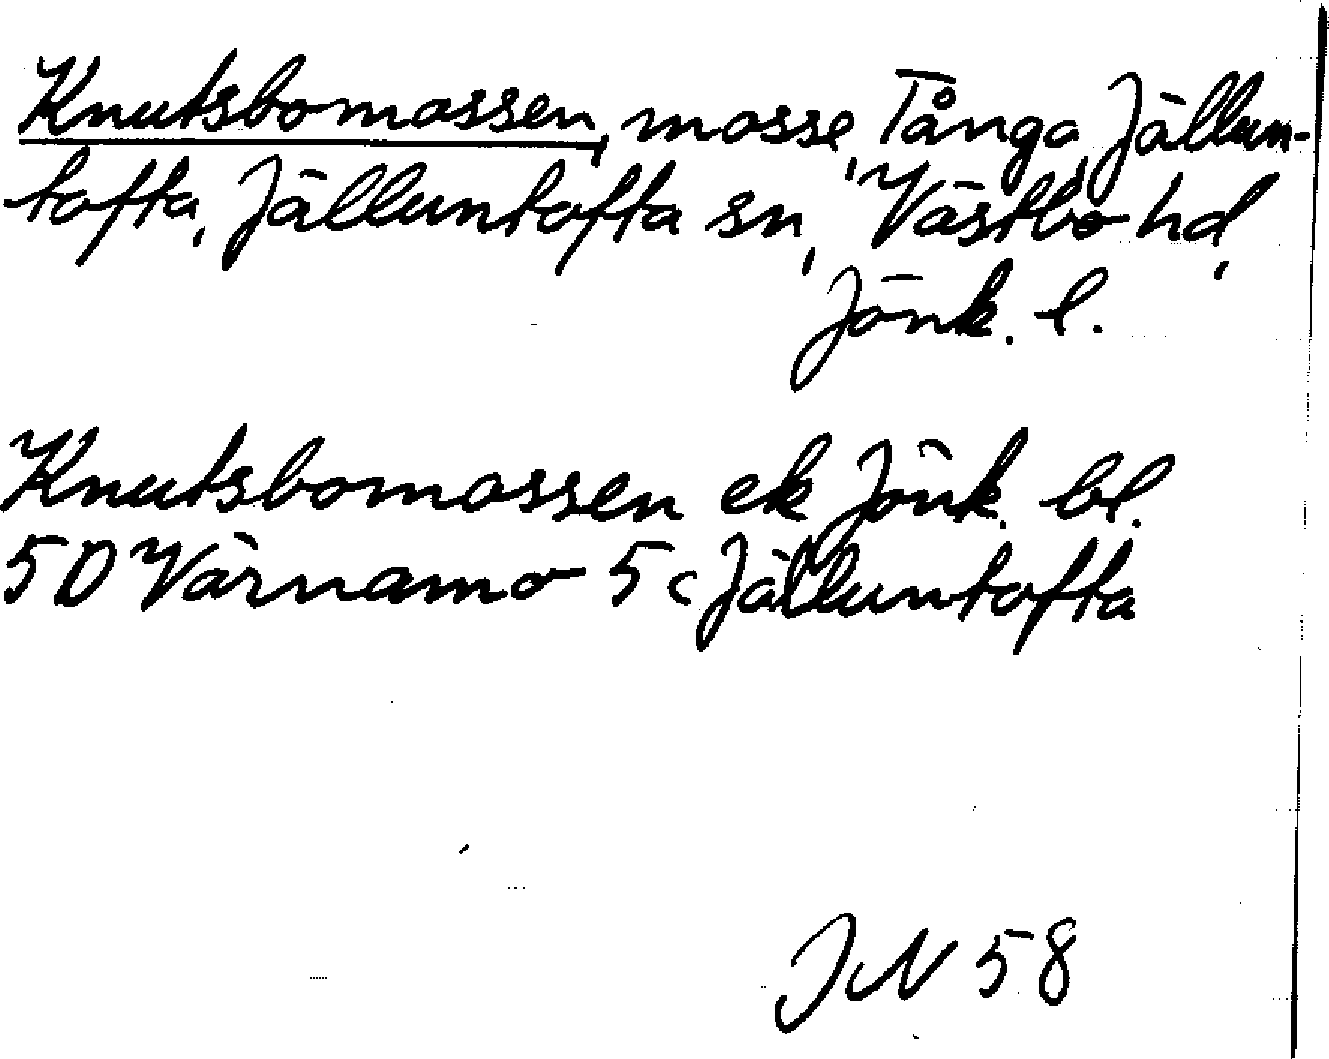 Knutsbomossen, mosse, Tånga, Jällun-
tofta, Jälluntofta sn, Västbo hd,
Jönk. l.
Knutsbomossen ek Jönk. bl.
5D Värnamo 5c Jälluntofta
JN 58